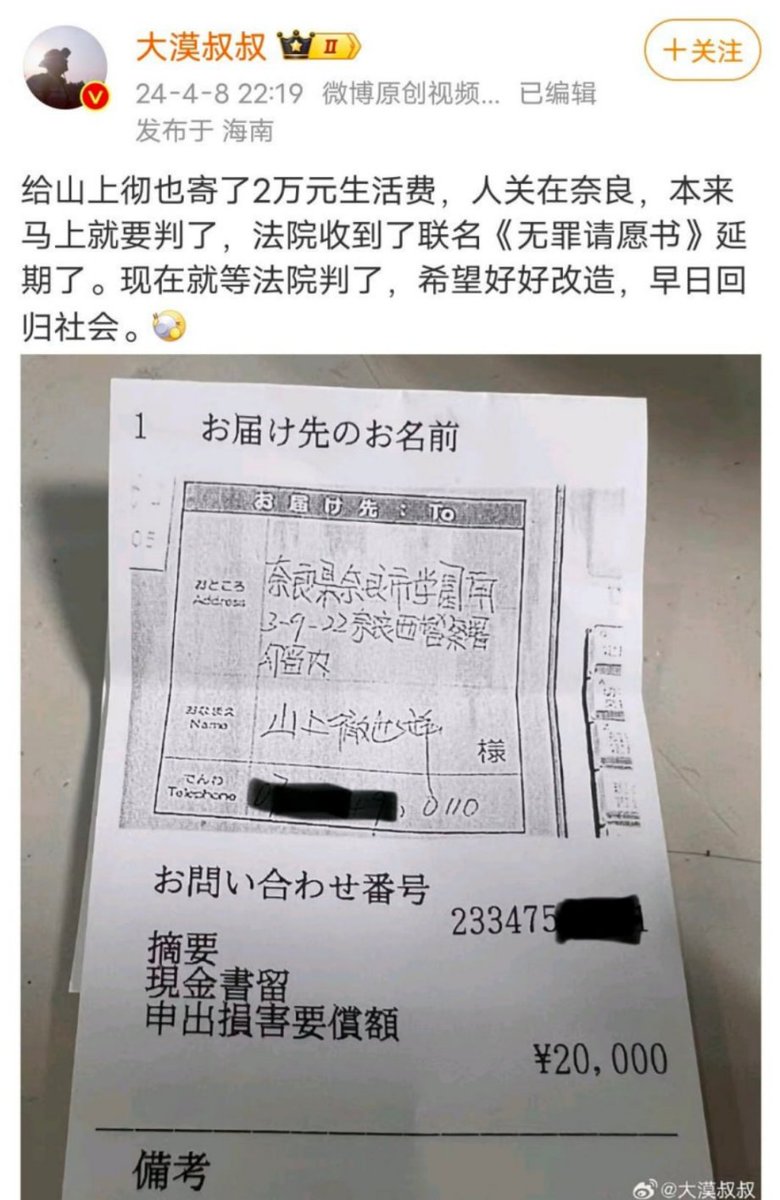 大漠叔叔
II
+关注
24-4-8 22:19 微博原创视频... 已编辑
发布于 海南
给山上彻也寄了2万元生活费，人关在奈良，本来
马上就要判了，法院收到了联名《无罪请愿书》延
期了。现在就等法院判了，希望好好改造，早日回
归社会。
1 お届け先のお名前
お届け先：To
おところ
Address
奈良県奈良市学園南
3-9-22奈良西警察署
留内
おなまえ
Name
山上徹也
様
でんわ
Telephone
0110
お問い合わせ番号
233475
摘要
現金書留
申出損害要償額
¥20,000
備考
@大漠叔叔